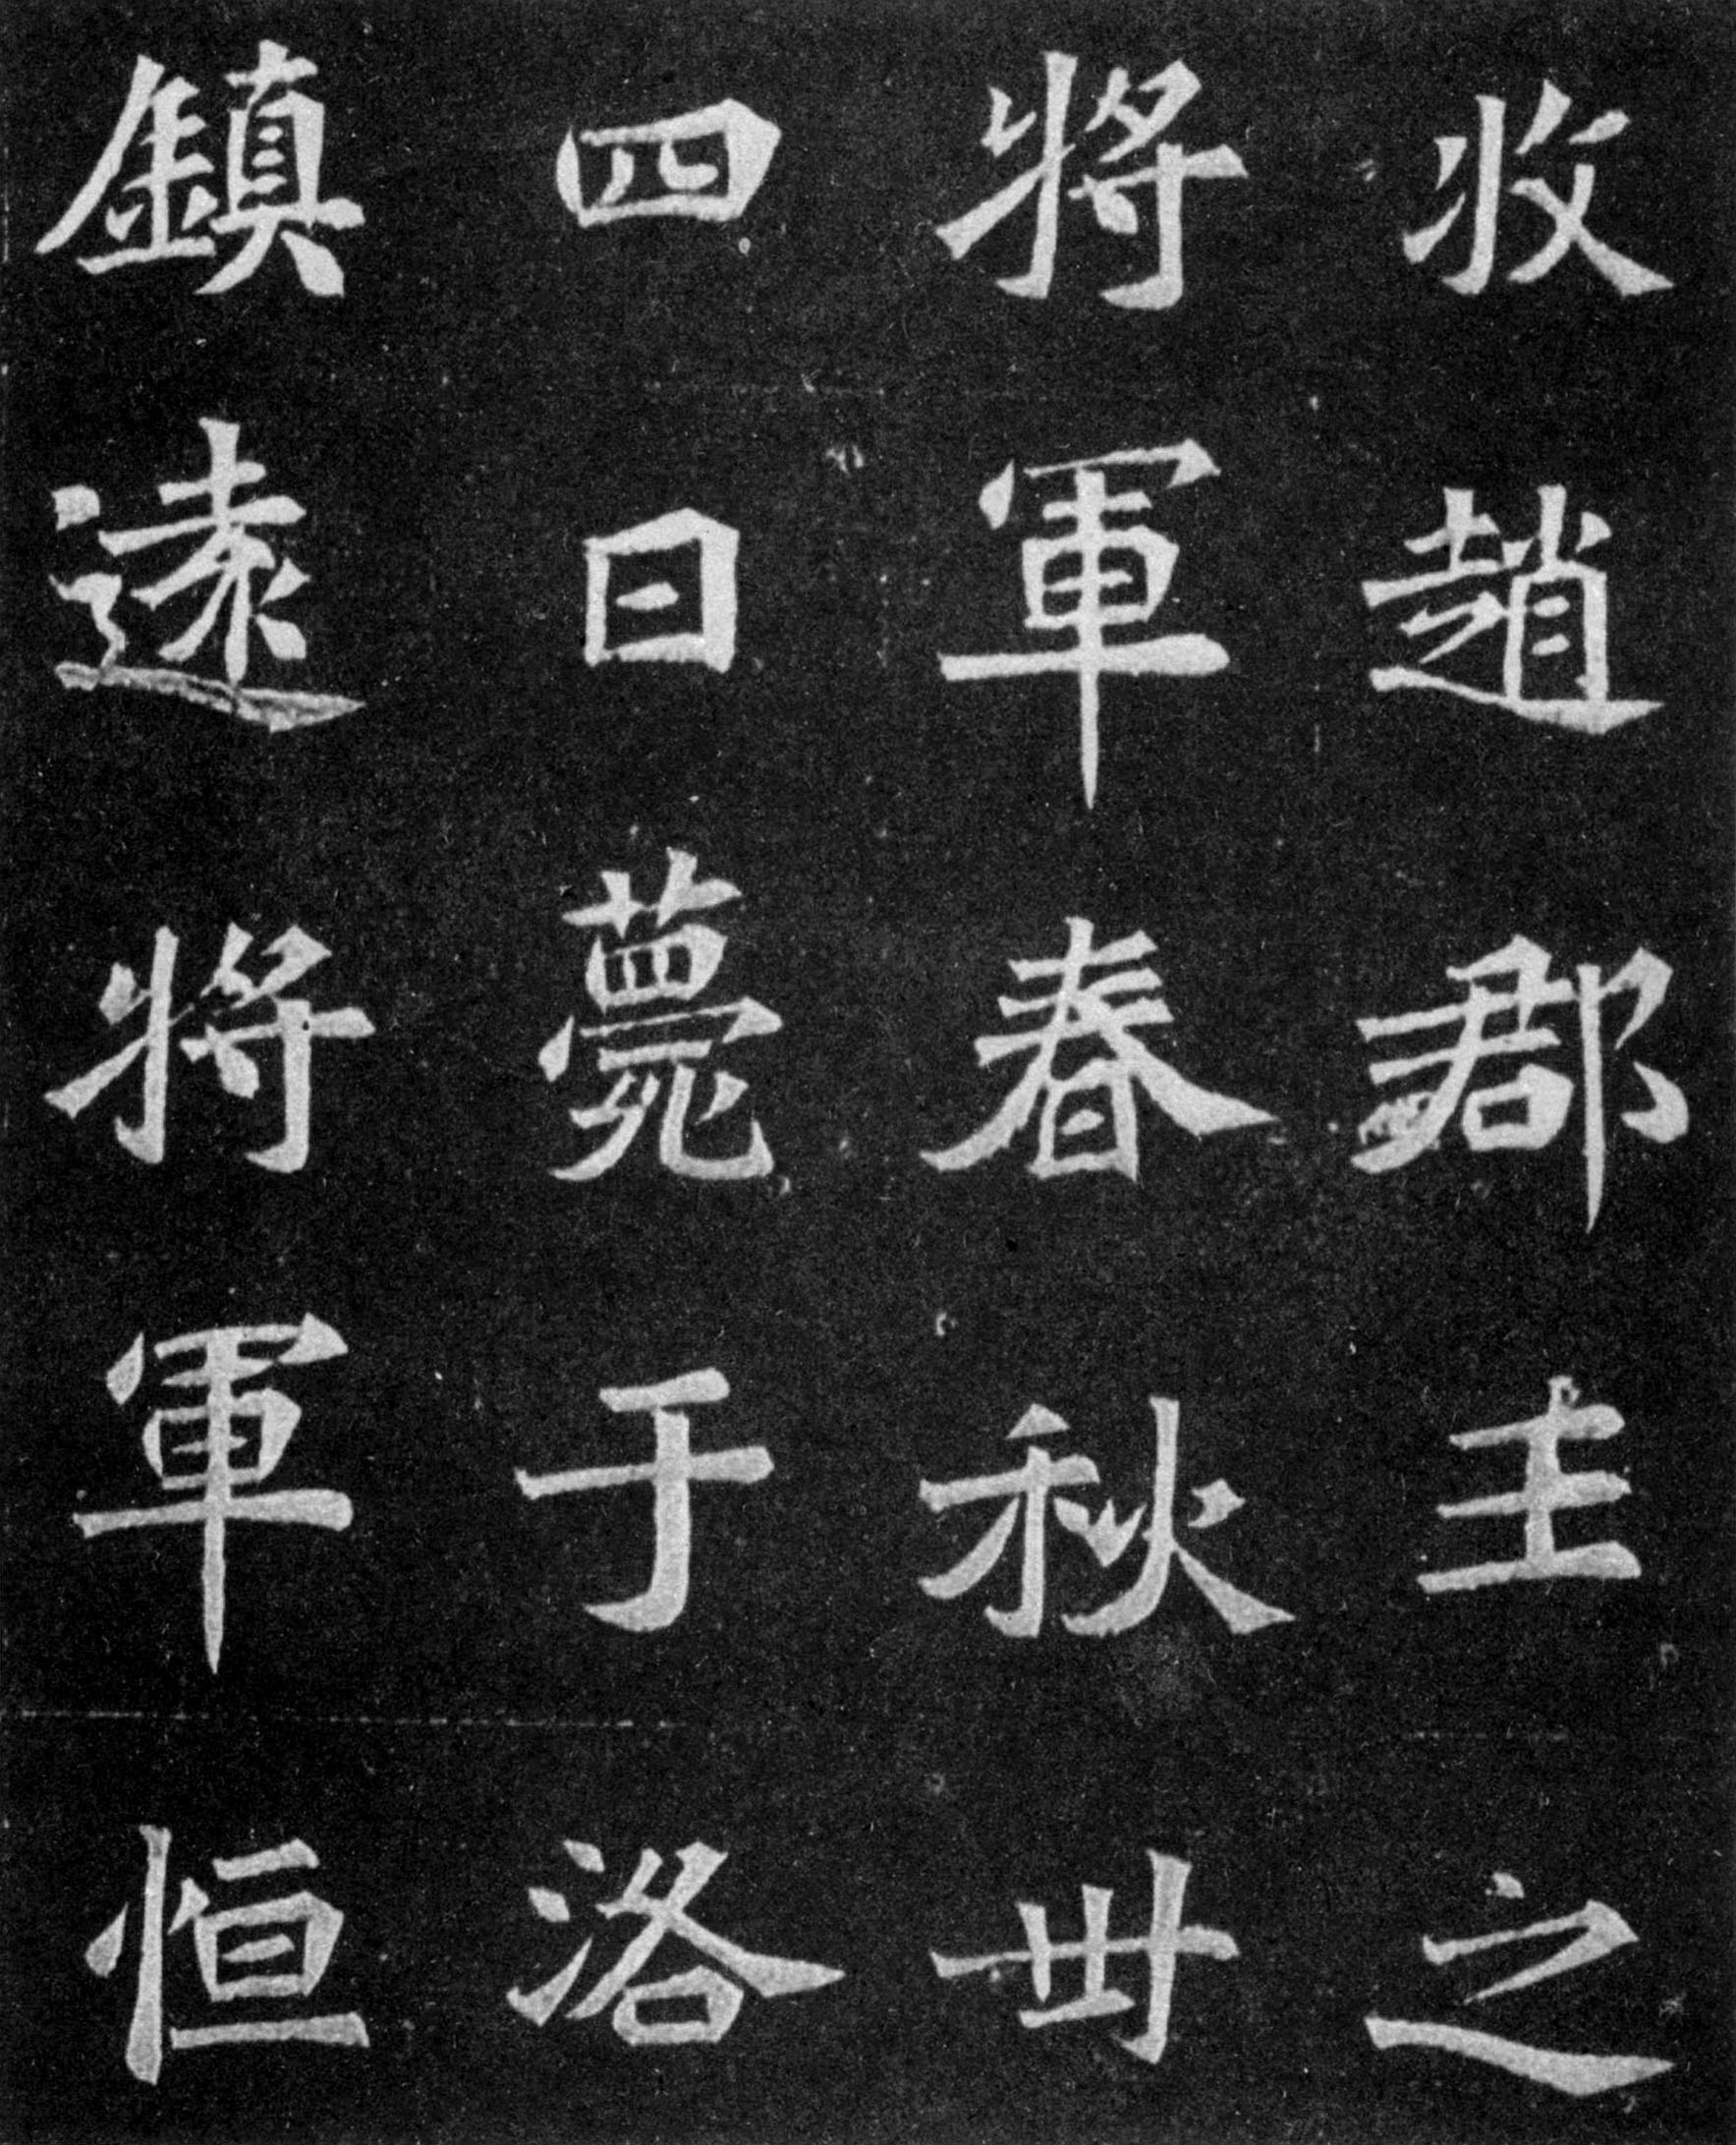 牧趙郡王之
將軍春秋卅
四日薨于洛
鎮遠將軍恒